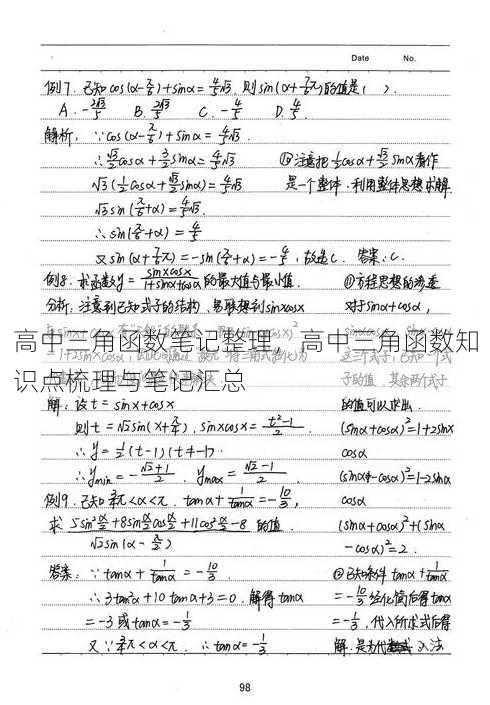 Date No.
例7. 已知cos(α-π/6)+sinα=4/5√3, 则sin(α+7/6π)的值是( ).
A. -2√3/5 B. 2√3/5 C. -4/5 D. 4/5
解析: ∵cos(α-π/6)+sinα=4/5√3.
∴√3/2cosα+3/2sinα=4/5√3 注意把1/2cosα+√3/2sinα看作
√3(1/2cosα+√3/2sinα)=4/5√3 是一个整体, 利用整体思想求解.
√3sin(π/6+α)=4/5√3.
∴sin(π/6+α)=4/5
又sin(α+7/6π)=-sin(π/6+α)=-4/5, 故选C. 答案:C.
例8. 求函数y=sinxcosx/1+sinx+cosx的最大值与最小值. ①方程思想的渗透
分析: 注意到已知式子的结构, 易联想到sinxcosx 对于sinα+cosα,
高中三角函数笔记整理，高中三角函数知
识点梳理与笔记汇总
这三个式子, 已知一个式
子的值, 其余两个式子
解: 设t=sinx+cosx 的值可以求出.
则t=√2sin(x+π/4), sinxcosx=t²-1/2 (sinα+cosα)²=1+2sinα
∴y=1/2(t-1)(t≠-1) cosα
∴ymin=-√2+1/2, ymax=√2-1/2 (sinα-cosα)²=1-2sinα
例9. 已知3/4π<α<π, tanα+1/tanα=-10/3, cosα
求 5sin²α/2+8sinα/2cosα/2+11cos²α/2-8 的值. (sinα+cosα)²+(sinα
√2sin(α-π/2) -cosα)²=2.
答案: ∵tanα+1/tanα=-10/3 ②已知条件tanα+1/tanα
∴3tan²α+10tanα+3=0, 解得tanα =-10/3经化简后得tanα
=-3或tanα=-1/3 =-1/3, 代入所求式后得
又∵3/4π<α<π, ∴tanα=-1/3 解, 是为代入法
98